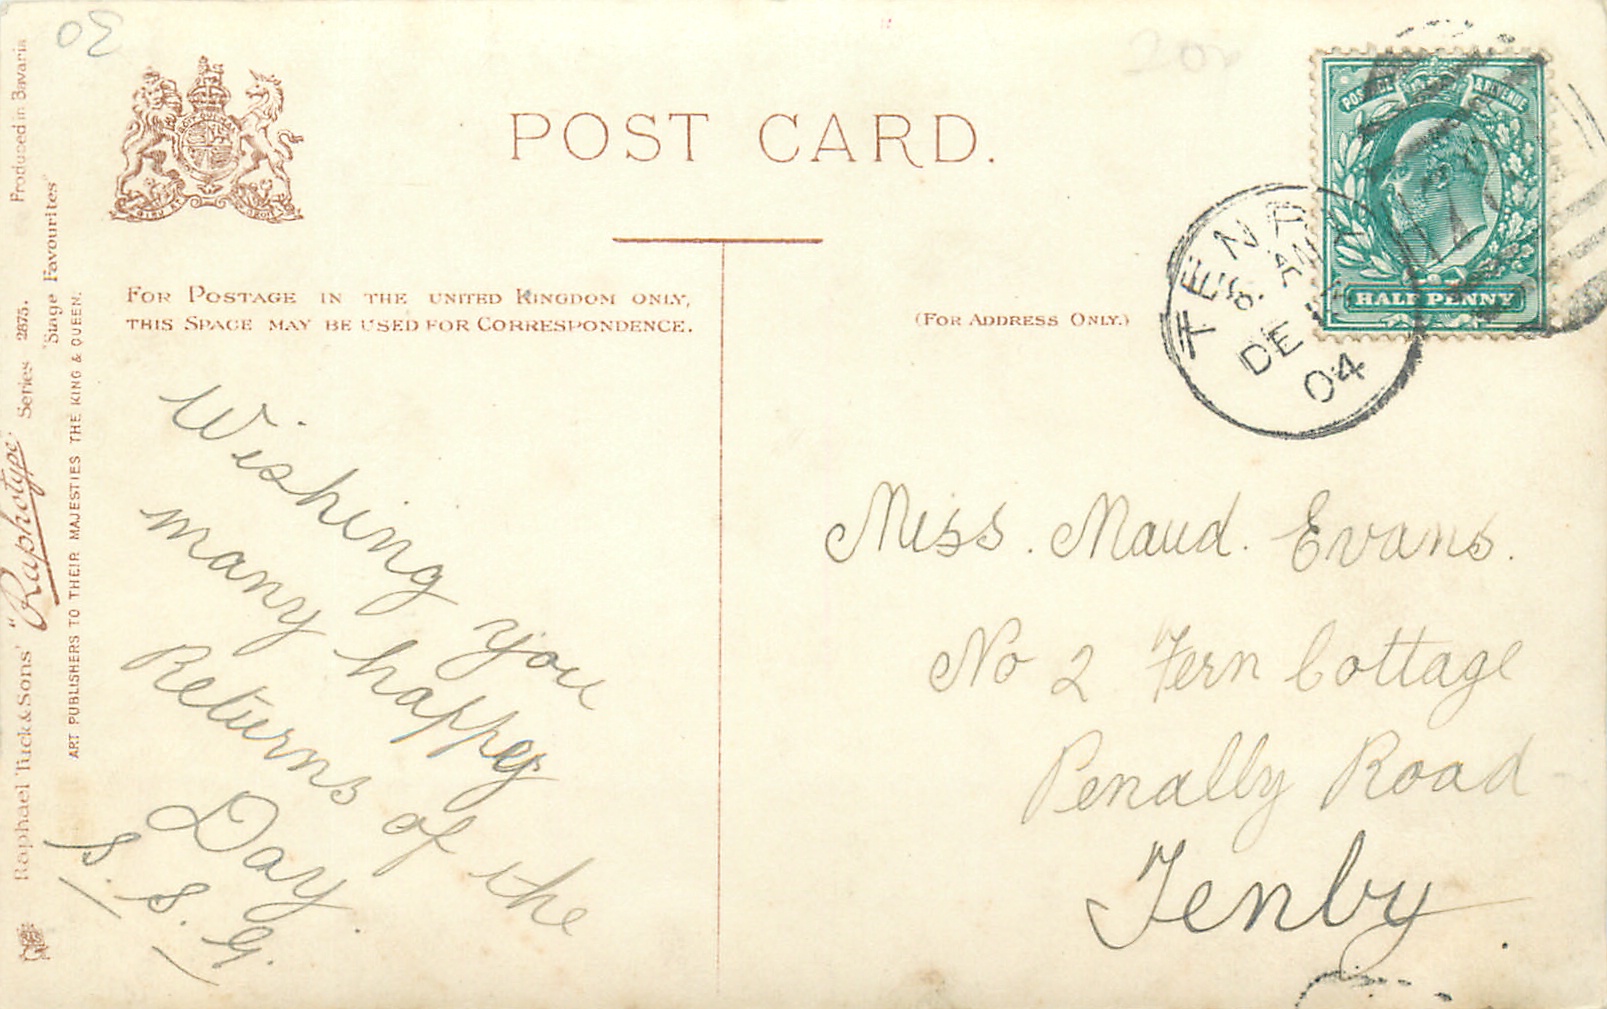 POST CARD.
FOR POSTAGE IN THE UNITED KINGDOM ONLY,
THIS SPACE MAY BE USED FOR CORRESPONDENCE.
(FOR ADDRESS ONLY.)
POSTAGE & REVENUE
HALF PENNY
TENBY
DE
04
Wishing you
many happy
Returns of the
Day.
S. S. G.
Miss. Maud. Evans.
No 2 Fern Cottage
Penally Road
Tenby.
Raphael Tuck & Sons' "Raphotype" Series 2875. Produced in Bavaria
"Stage Favourites"
ART PUBLISHERS TO THEIR MAJESTIES THE KING & QUEEN.